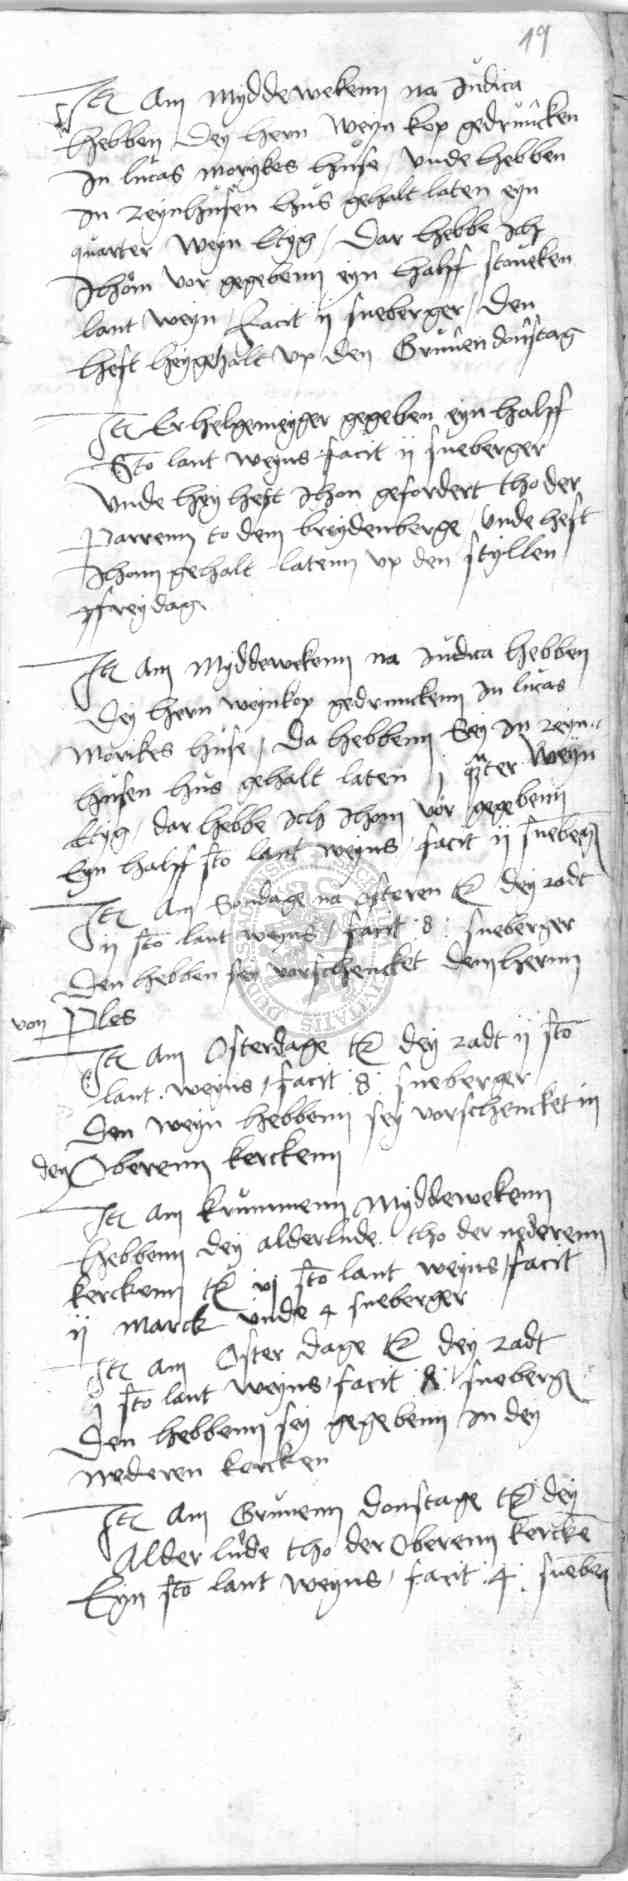 19
Itē Am Myddewekenn na Judica
hebben dey hern weyn kop gedruncken
In lucas morykes huse, vnde hebben
In Reynhusen hus gehalt laten eyn
quarter weyn, dar hebbe Ich
Ichom vor gegebenn eyn halff stoueken
lant weyn, facit ij sneberger, den
heft hey gehalt vp den Grunen donstag
Itē Er helgemeyger gegeben eyn halff
sto lant weyns facit ij sneberger
vnde hey heft Ichon gefordert tho der
Parrenn to dem breydenberge, vnde heft
Ichonn gehalt latenn vp den styllen
ffreydag
Itē Am Myddewekenn na Judica hebben
dey hern weynkop gedrunckenn In lucas
Morikes huse, Da hebbenn Sey In Reyn
husen hus gehalt laten j qrter weyn
dar hebbe Ich Ichom vor gegebenn
Eyn halff sto lant weyns, facit ij sneberg
Itē Am Sondage na osteren tē dey radt
ij sto lant weyns, facit 8 sneberger
Den hebben sey vorschencket dem hernn
von Ples
Itē Am Osterdage tē dey radt ij sto
lant weyns, facit 8 sneberger
Den weyn hebbenn sey vorschencket in
dey Oberenn kerckenn
Itē Am krummenn Myddewekenn
hebbenn dey alderlude tho der nederenn
kerckenn tē vj sto lant weyns, facit
ij Marck vnde 4 sneberger
Itē Am Oster dage tē dey radt
ij sto lant weyns, facit 8 sneberg
Den hebbenn sey gegebenn In dey
nederen kercken
Itē Am Grunenn donstage tē dey
Alder lude tho der Oberenn kercke
Eyn sto lant weyns, facit 4 sneberg